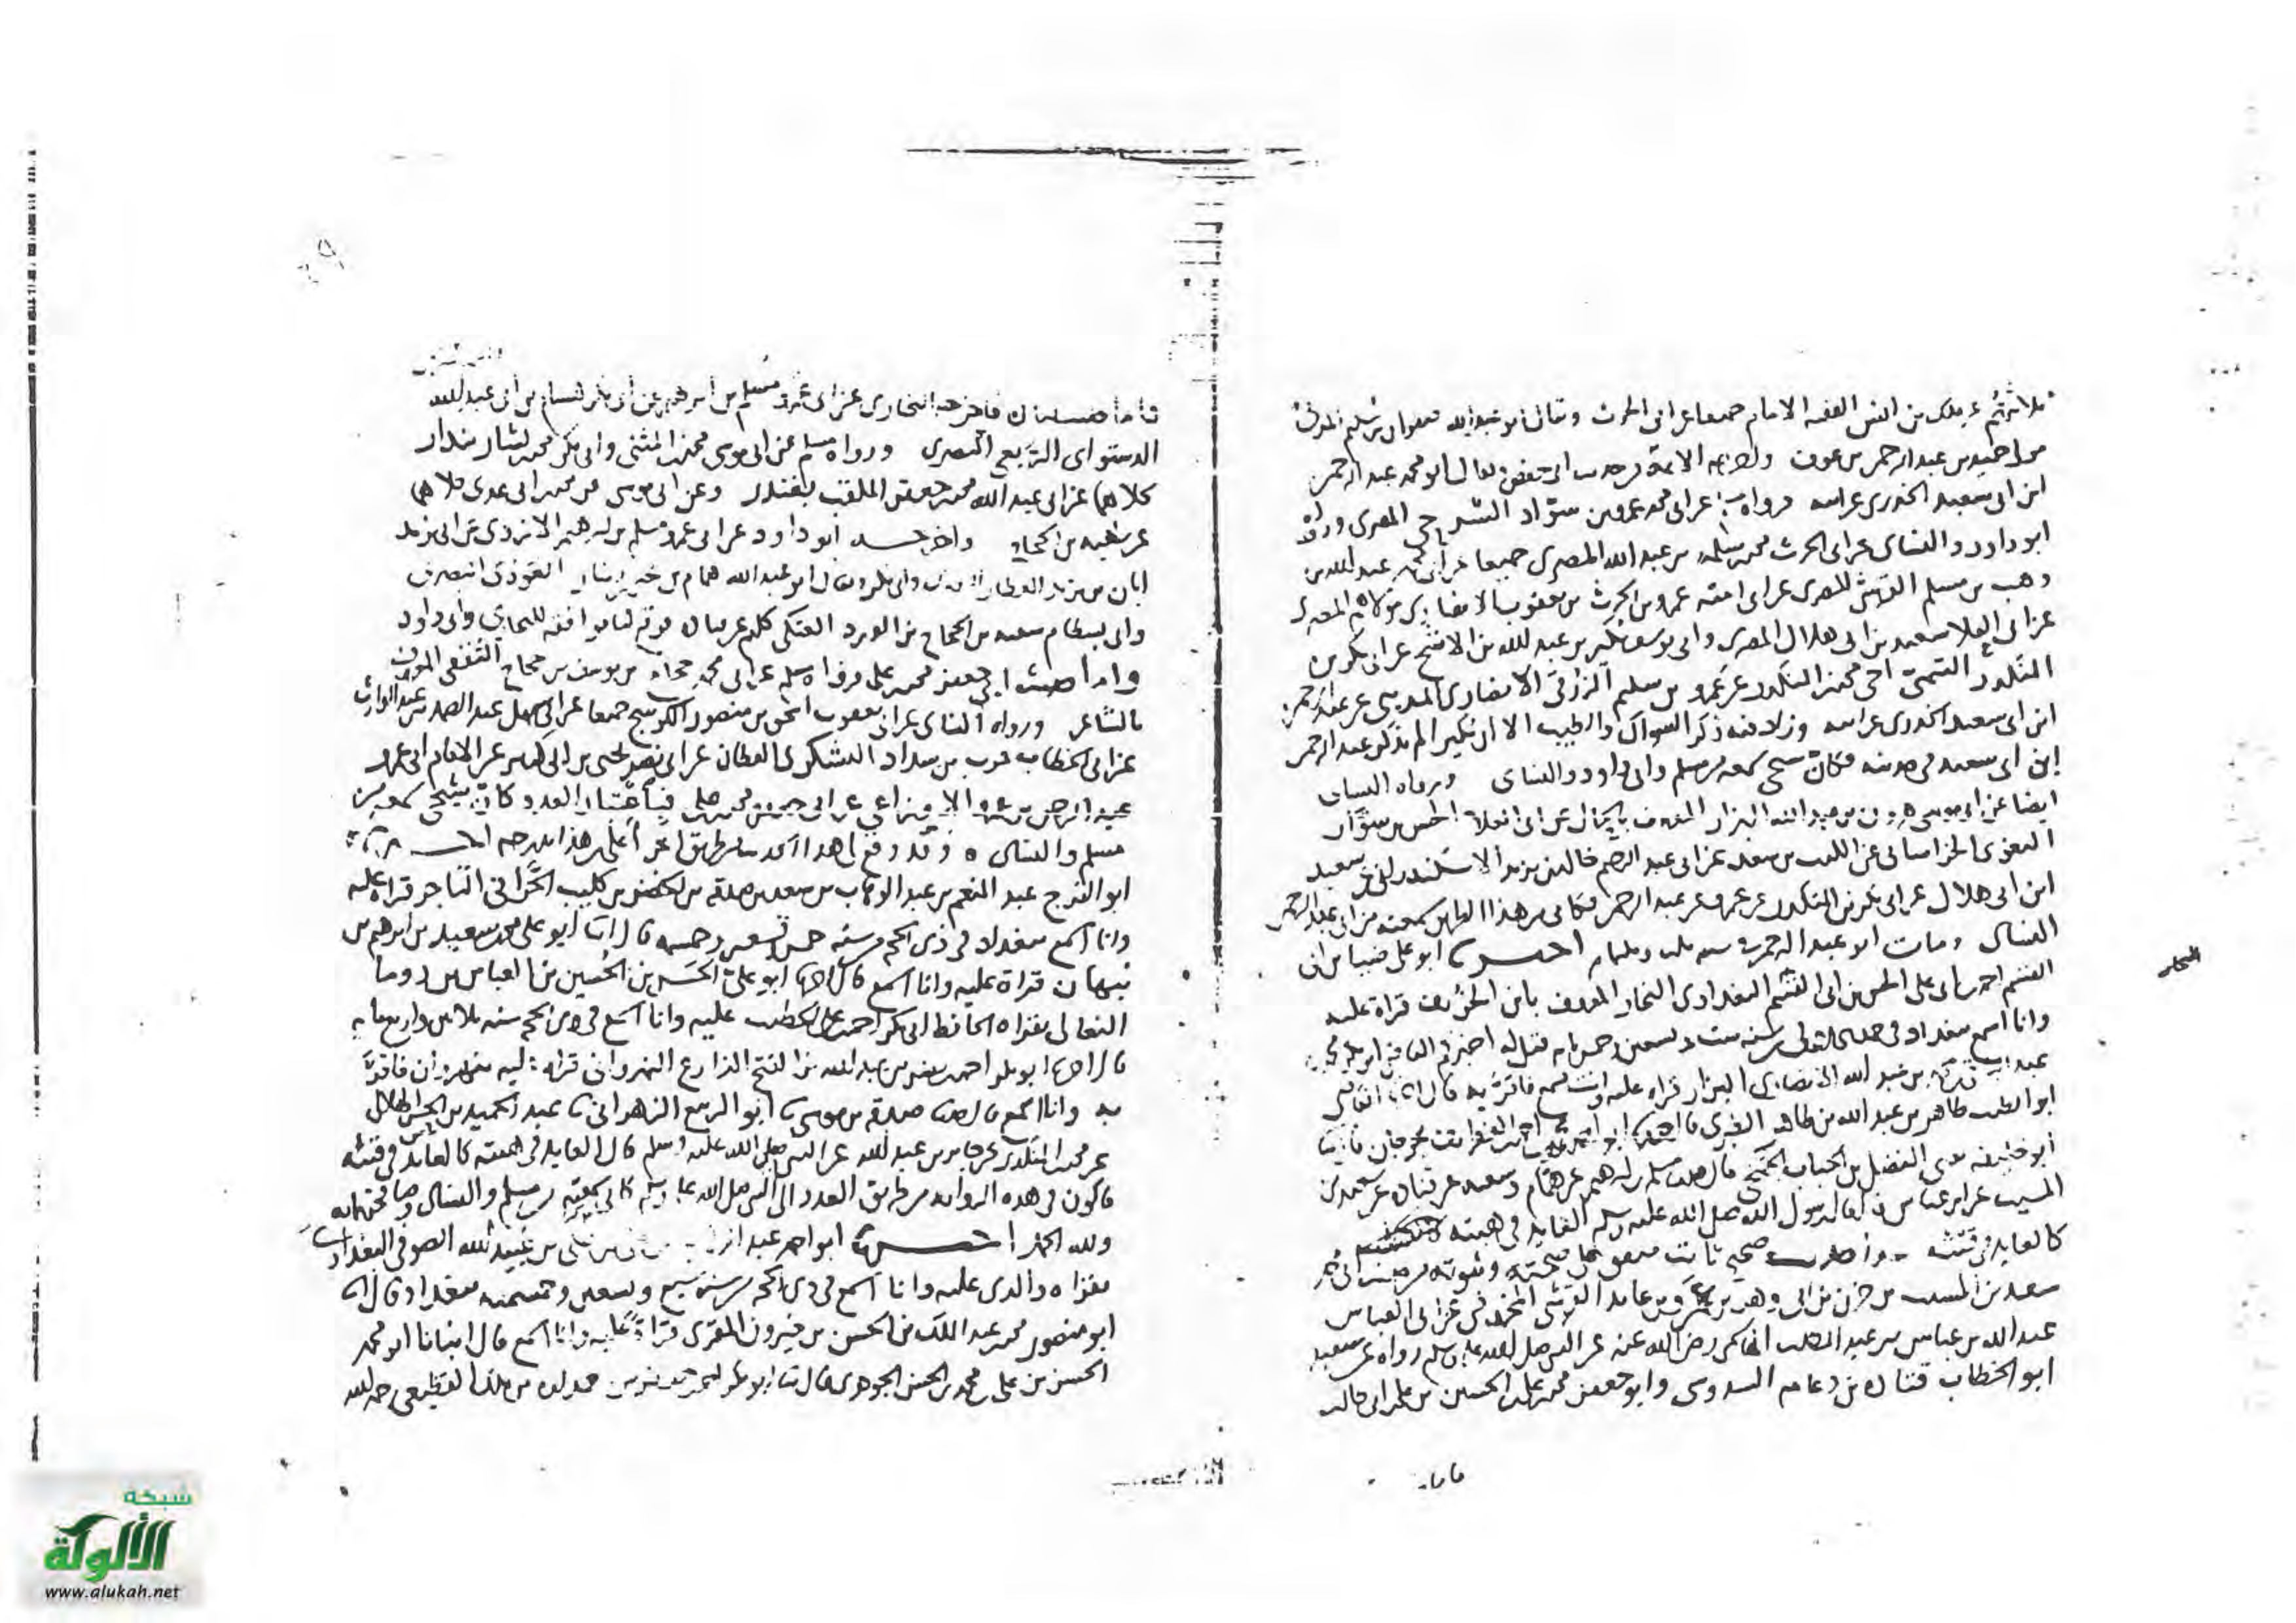 ثلاثتهم عن ملك بن انس الفقيه الامام جميعا عن ابي الحرث ويقال ابو عبد الله صفوان بن سليم المدني
مولى حميد بن عبد الرحمن بن عوف الائمة من حديث ابي حفص ويقال ابو محمد عبد الرحمن
ابن ابي سعيد الخدري عن ابيه فرواه عن ابي محمد عمرو بن سواد السرحي المصري ورواه
ابو داود والنساي عن ابي الحرث محمد بن سلمة بن عبد الله المصري جميعا عن ابي محمد عبد الله بن
وهب بن مسلم القرشي المصري عن ابي امية عمرو بن الحرث بن يعقوب الانصاري مولاهم المصري
عن ابي العلا سعيد بن ابي هلال المصري وابي يوسف بكير بن عبد الله بن الاشج عن ابي بكر بن
المنكدر التيمي اخي محمد بن المنكدر عن عمرو بن سليم الزرقي الانصاري المديني عن عبد الرحمن
ابن ابي سعيد الخدري عن ابيه وزاد فيه ذكر السواك والطيب الا ان بكيرا لم يذكر عبد الرحمن
ابن ابي سعيد في حديثه فكان شيخي سمعه من مسلم وابي داود والنساي ورواه النساي
ايضا عن ابي موسى هرون بن عبد الله البزاز المعروف بالحمال عن ابي العلا الحسن بن سوار
البغوي الخراساني عن الليث بن سعد عن ابي عبد الرحيم خالد بن يزيد الاسكندراني عن سعيد
ابن ابي هلال عن ابي بكر بن المنكدر عن عمرو عن عبد الرحمن فكاني من هذا الطريق سمعته من ابي عبد الرحمن
النساي ومات ابو عبد الرحمن سنة ثلث وثلثمايه اخبرنا ابو علي ضيا بن ابي
القسم احمد بن ابي علي الحسن بن ابي القسم البغدادي النجار المعروف بابن الخريف قراة عليه
النجار
وانا اسمع ببغداد في سنة ست وتسعين وخمس مايه قيل له اخبركم القاضي ابو بكر محمد بن
عبد الباقي بن عبد الله الانصاري البزاز قراه عليه وانت تسمع فاقر به قال انا القاضي
ابو الطيب طاهر بن عبد الله بن طاهر الطبري ابو احمد محمد بن احمد الغطريف بجرجان
ابو خليفه يعني الفضل بن الحباب الجمحي قال حدثنا مسلم بن ابرهيم عن هشام وشعبه عن قتاده عن سعيد بن
المسيب عن ابن عباس قال قال رسول الله صلى الله عليه وسلم العايد في هبته
كالعايد في قيئه حديث صحيح ثابت متفق على صحته وثبوته من حديث ابي محمد
سعيد بن المسيب بن حزن بن ابي وهب بن عمرو بن عايذ القرشي المخزومي عن ابي العباس
عبد الله بن عباس بن عبد المطلب الهاشمي رضي الله عنه عن النبي صلى الله عليه وسلم رواه عن سعيد
ابو الخطاب قتاده بن دعامه السدوسي وابو جعفر محمد بن علي بن الحسين بن علي بن ابي طالب
فاما
فاما حديث قتادة فاخرجه البخاري عن ابي عمرو مسلم بن ابرهيم عن ابي بكر هشام بن ابي عبد الله
الدستواي الربعي البصري ورواه مسلم عن ابي موسى محمد بن المثنى وابي بكر محمد بن بشار بندار
كلاهما عن ابي عبد الله محمد بن جعفر الملقب بغندر وعن ابي موسى عن محمد بن ابي عدي كلاهما
عن شعبه بن الحجاج واخرجه ابو داود عن ابي عمرو مسلم بن ابرهيم الازدي عن ابي يزيد
ابان بن يزيد العطار وابي بكر ويقال ابو عبد الله همام بن يحيى بن دينار العوذي البصري
وابي بسطام شعبه بن الحجاج بن الورد العتكي كلهم عن قتاده فوقع لنا موافقه للبخاري وابي داود
واما حديث ابي جعفر محمد بن علي فرواه مسلم عن ابي محمد حجاج بن يوسف بن حجاج الثقفي المعروف
بالشاعر ورواه النساي عن ابي يعقوب اسحق بن منصور الكوسج جميعا عن ابي سهل عبد الصمد بن عبد الوارث
عن ابي الخطاب حرب بن شداد اليشكري القطان عن ابي نصر يحيى بن ابي كثير عن الامام ابي عمرو
عبد الرحمن بن عمرو الاوزاعي عن ابي جعفر محمد بن علي فباعتبار العدد كان شيخي سمعه من
مسلم والنساي وقد وقع لي هذا الحديث من طريق اخر اعلى من هذا بدرجه اخبرناه
ابو الفرج عبد المنعم بن عبد الوهاب بن سعد بن صدقه بن الخضر بن كليب الحراني التاجر قراة عليه
وانا اسمع ببغداد في ذي الحجه من سنه خمس وتسعين وخمسمايه قال انا ابو علي محمد بن سعيد بن ابرهيم بن
نبهان قراة عليه وانا اسمع قال انا ابو علي الحسن بن الحسين بن العباس بن دوما
النعالي بقراه الحافظ ابي بكر احمد بن علي الخطيب عليه وانا اسمع في ذي الحجه سنه ثلاثين واربعمايه
قال انا ابو بكر احمد بن نصر بن عبد الله بن الفتح الذارع النهرواني قراة عليه بنهروان فاقر
به وانا اسمع قال حدثنا صدقة بن موسى ثنا ابو الربيع الزهراني ثنا عبد الحميد بن الحسن الهلالي
عن محمد بن المنكدر عن جابر بن عبد الله عن النبي صلى الله عليه وسلم قال العايد في هبته كالعايد في قيئه
فاكون في هذه الروايه من طريق العدد الى النبي صلى الله عليه وسلم كاني سمعته من مسلم والنساي وصافحتهما به
ولله الحمد اخبرنا ابو احمد عبد بن علي بن عبيد الله الصوفي البغدادي
بقراه والدي عليه وانا اسمع في ذي الحجه من سنه سبع وتسعين وخمسمئه ببغداد قال انا
ابو منصور محمد بن عبد الملك بن الحسن بن خيرون المقري قراة عليه وانا اسمع قال انبانا ابو محمد
الحسن بن علي بن محمد بن الحسن الجوهري قال ثنا ابو بكر احمد بن جعفر بن حمدان بن ملك القطيعي رحمه الله
شبكة
الألوكة
www.alukah.net